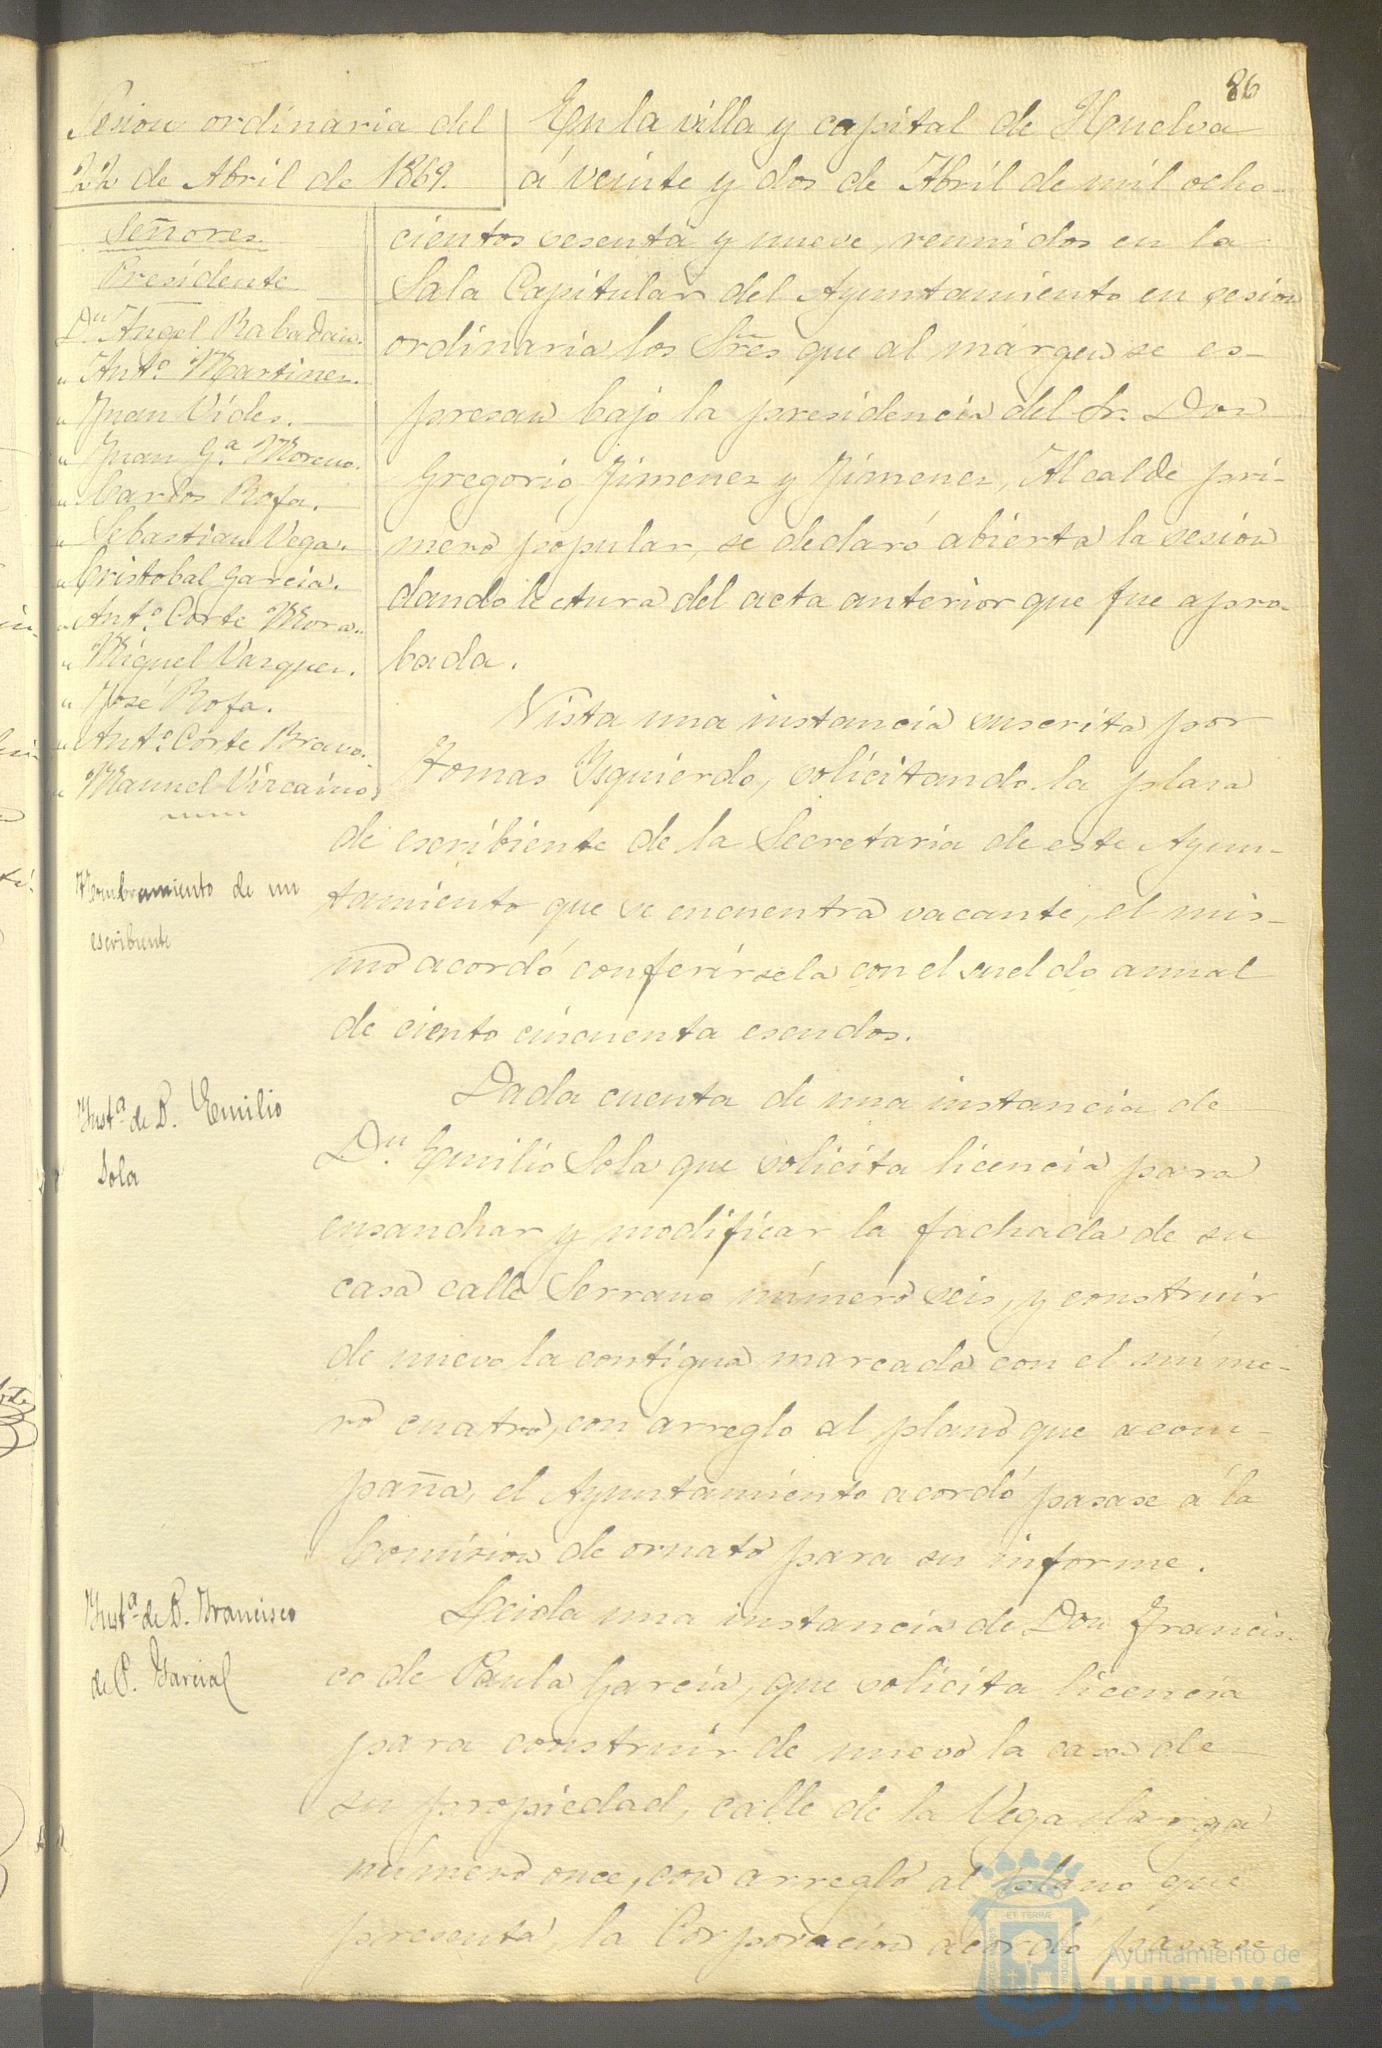 86
Sesion ordinaria del
22 de Abril de 1869.
Señores
Presidente
Dn. Angel Rabadan.
" Anto. Martinez.
" Juan Vides.
" Juan Ga. Moreno.
" Carlos Rofa.
" Sebastian Vega.
" Cristobal Garcia.
" Anto. Corte Mora.
" Miguel Vazquez.
" José Rofa.
" Anto. Corte Bravo.
" Manuel Vizcaino
En la villa y capital de Huelva
á veinte y dos de Abril de mil ocho-
cientos sesenta y nueve, reunidos en la
Sala Capitular del Ayuntamiento en sesion
ordinaria los Sres que al márgen se es-
presan bajo la presidencia del Sr. Don
Gregorio Jimenez y Jimenez, Alcalde pri-
mero popular, se declaró abierta la sesión
dando lectura del acta anterior que fue apro-
bada.
Nombramiento de un
escribiente
Vista una instancia suscrita por
Tomas Ysquierdo, solicitando la plaza
de escribiente de la Secretaria de este Ayun-
tamiento que se encuentra vacante, el mis-
mo acordó conferírsela con el sueldo anual
de ciento cincuenta escudos.
Ynsta. de D. Emilio
Sola
Dada cuenta de una instancia de
Dn. Emilio Sola que solicita licencia para
ensanchar y modificar la fachada de su
casa calle Serrano número seis, y construir
de nuevo la contigua marcada con el núme-
ro cuatro, con arreglo al plano que acom-
paña, el Ayuntamiento acordó pasase á la
Comision de ornato para su informe.
Ynsta. de D. Francisco
de P. Garcia
Leida una instancia de Don Francis-
co de Paula García, que solicita licencia
para construir de nuevo la casa de
su propiedad, calle de la Vega larga
número once, con arreglo al plano que
presenta, la Corporacion acordó pasase
Ayuntamiento de
HUELVA